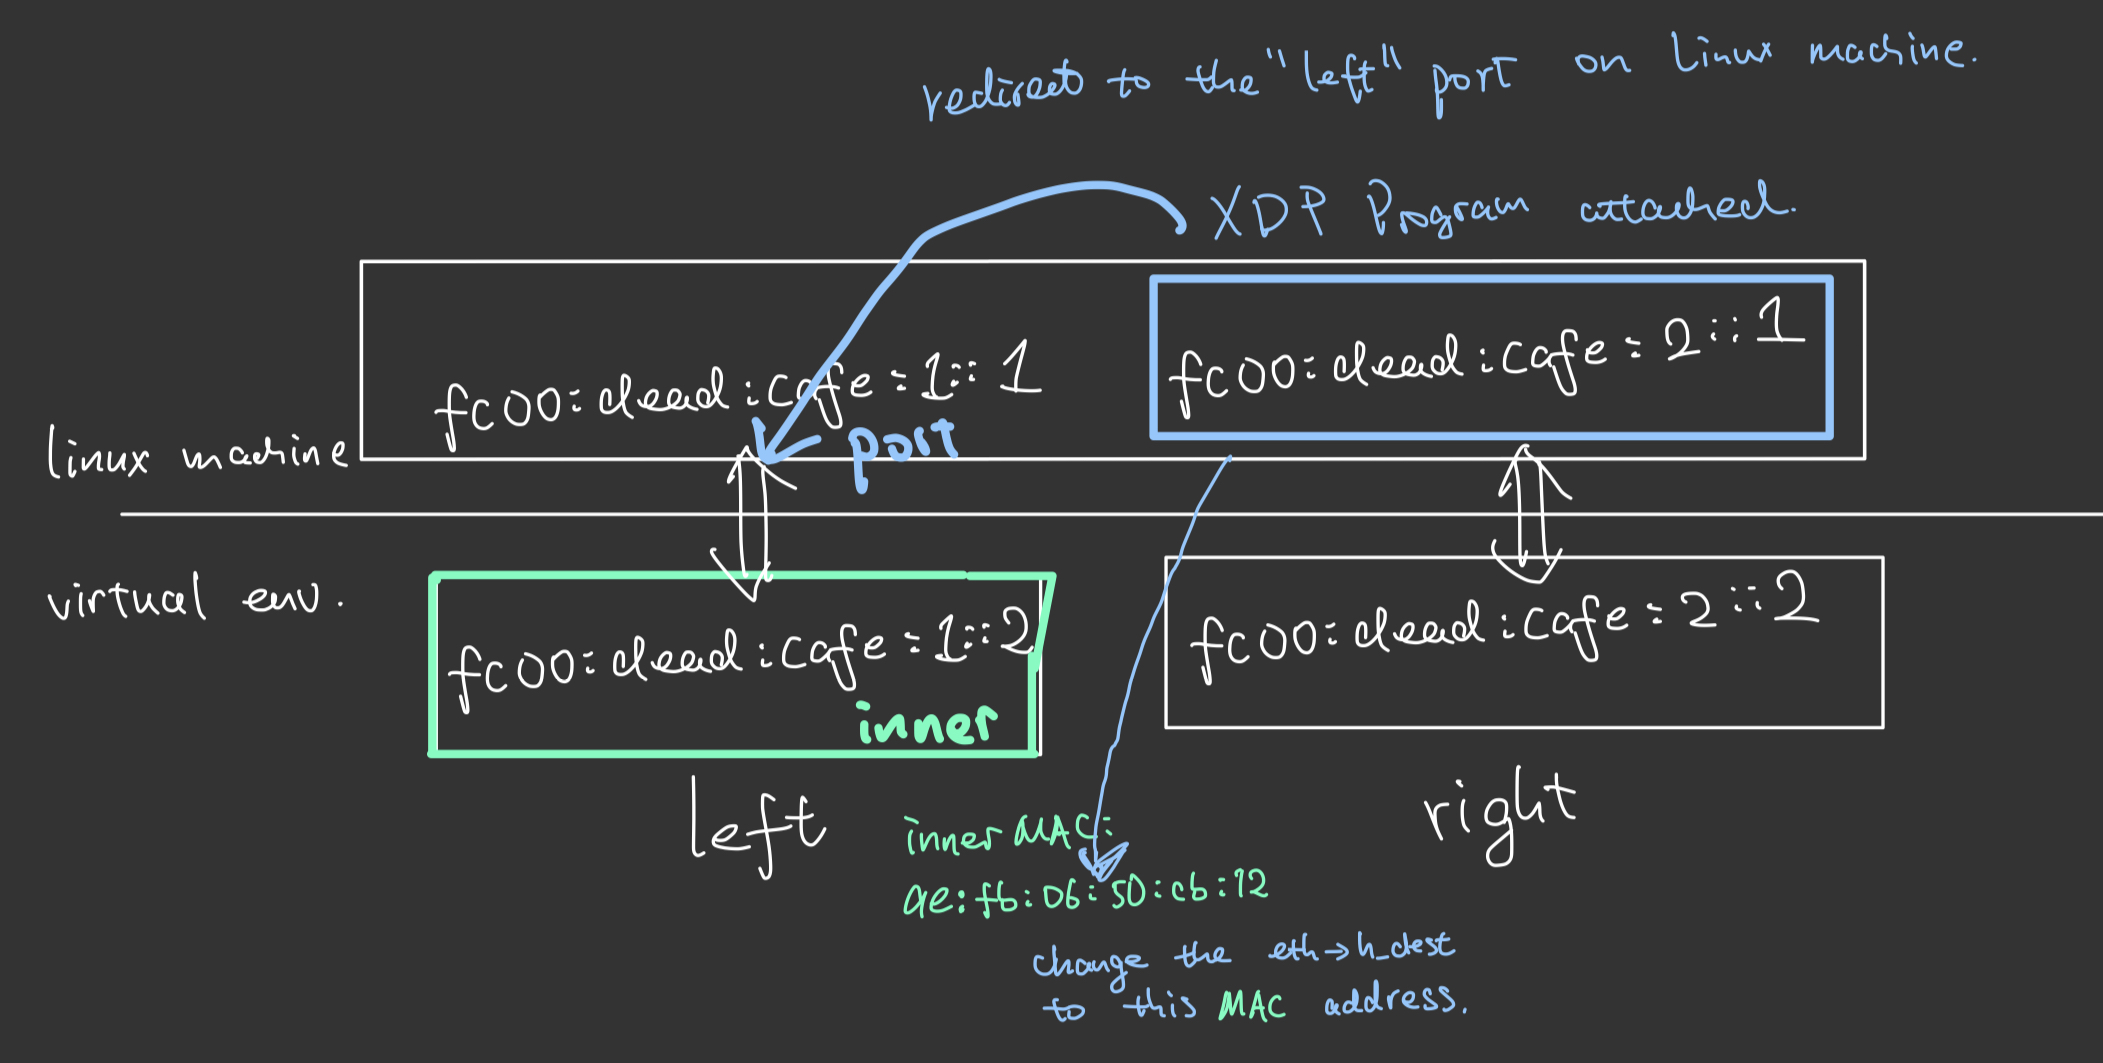 redirect to the "left" port on Linux machine.
XDP Program attached.
fc00:dead:cafe:1::1
fc00:dead:cafe:2::1
port
linux machine
virtual env.
fc00:dead:cafe:1::2
inner
fc00:dead:cafe:2::2
left
right
inner MAC:
ae:fb:06:50:cb:12
change the eth→h_dest
to this MAC address.